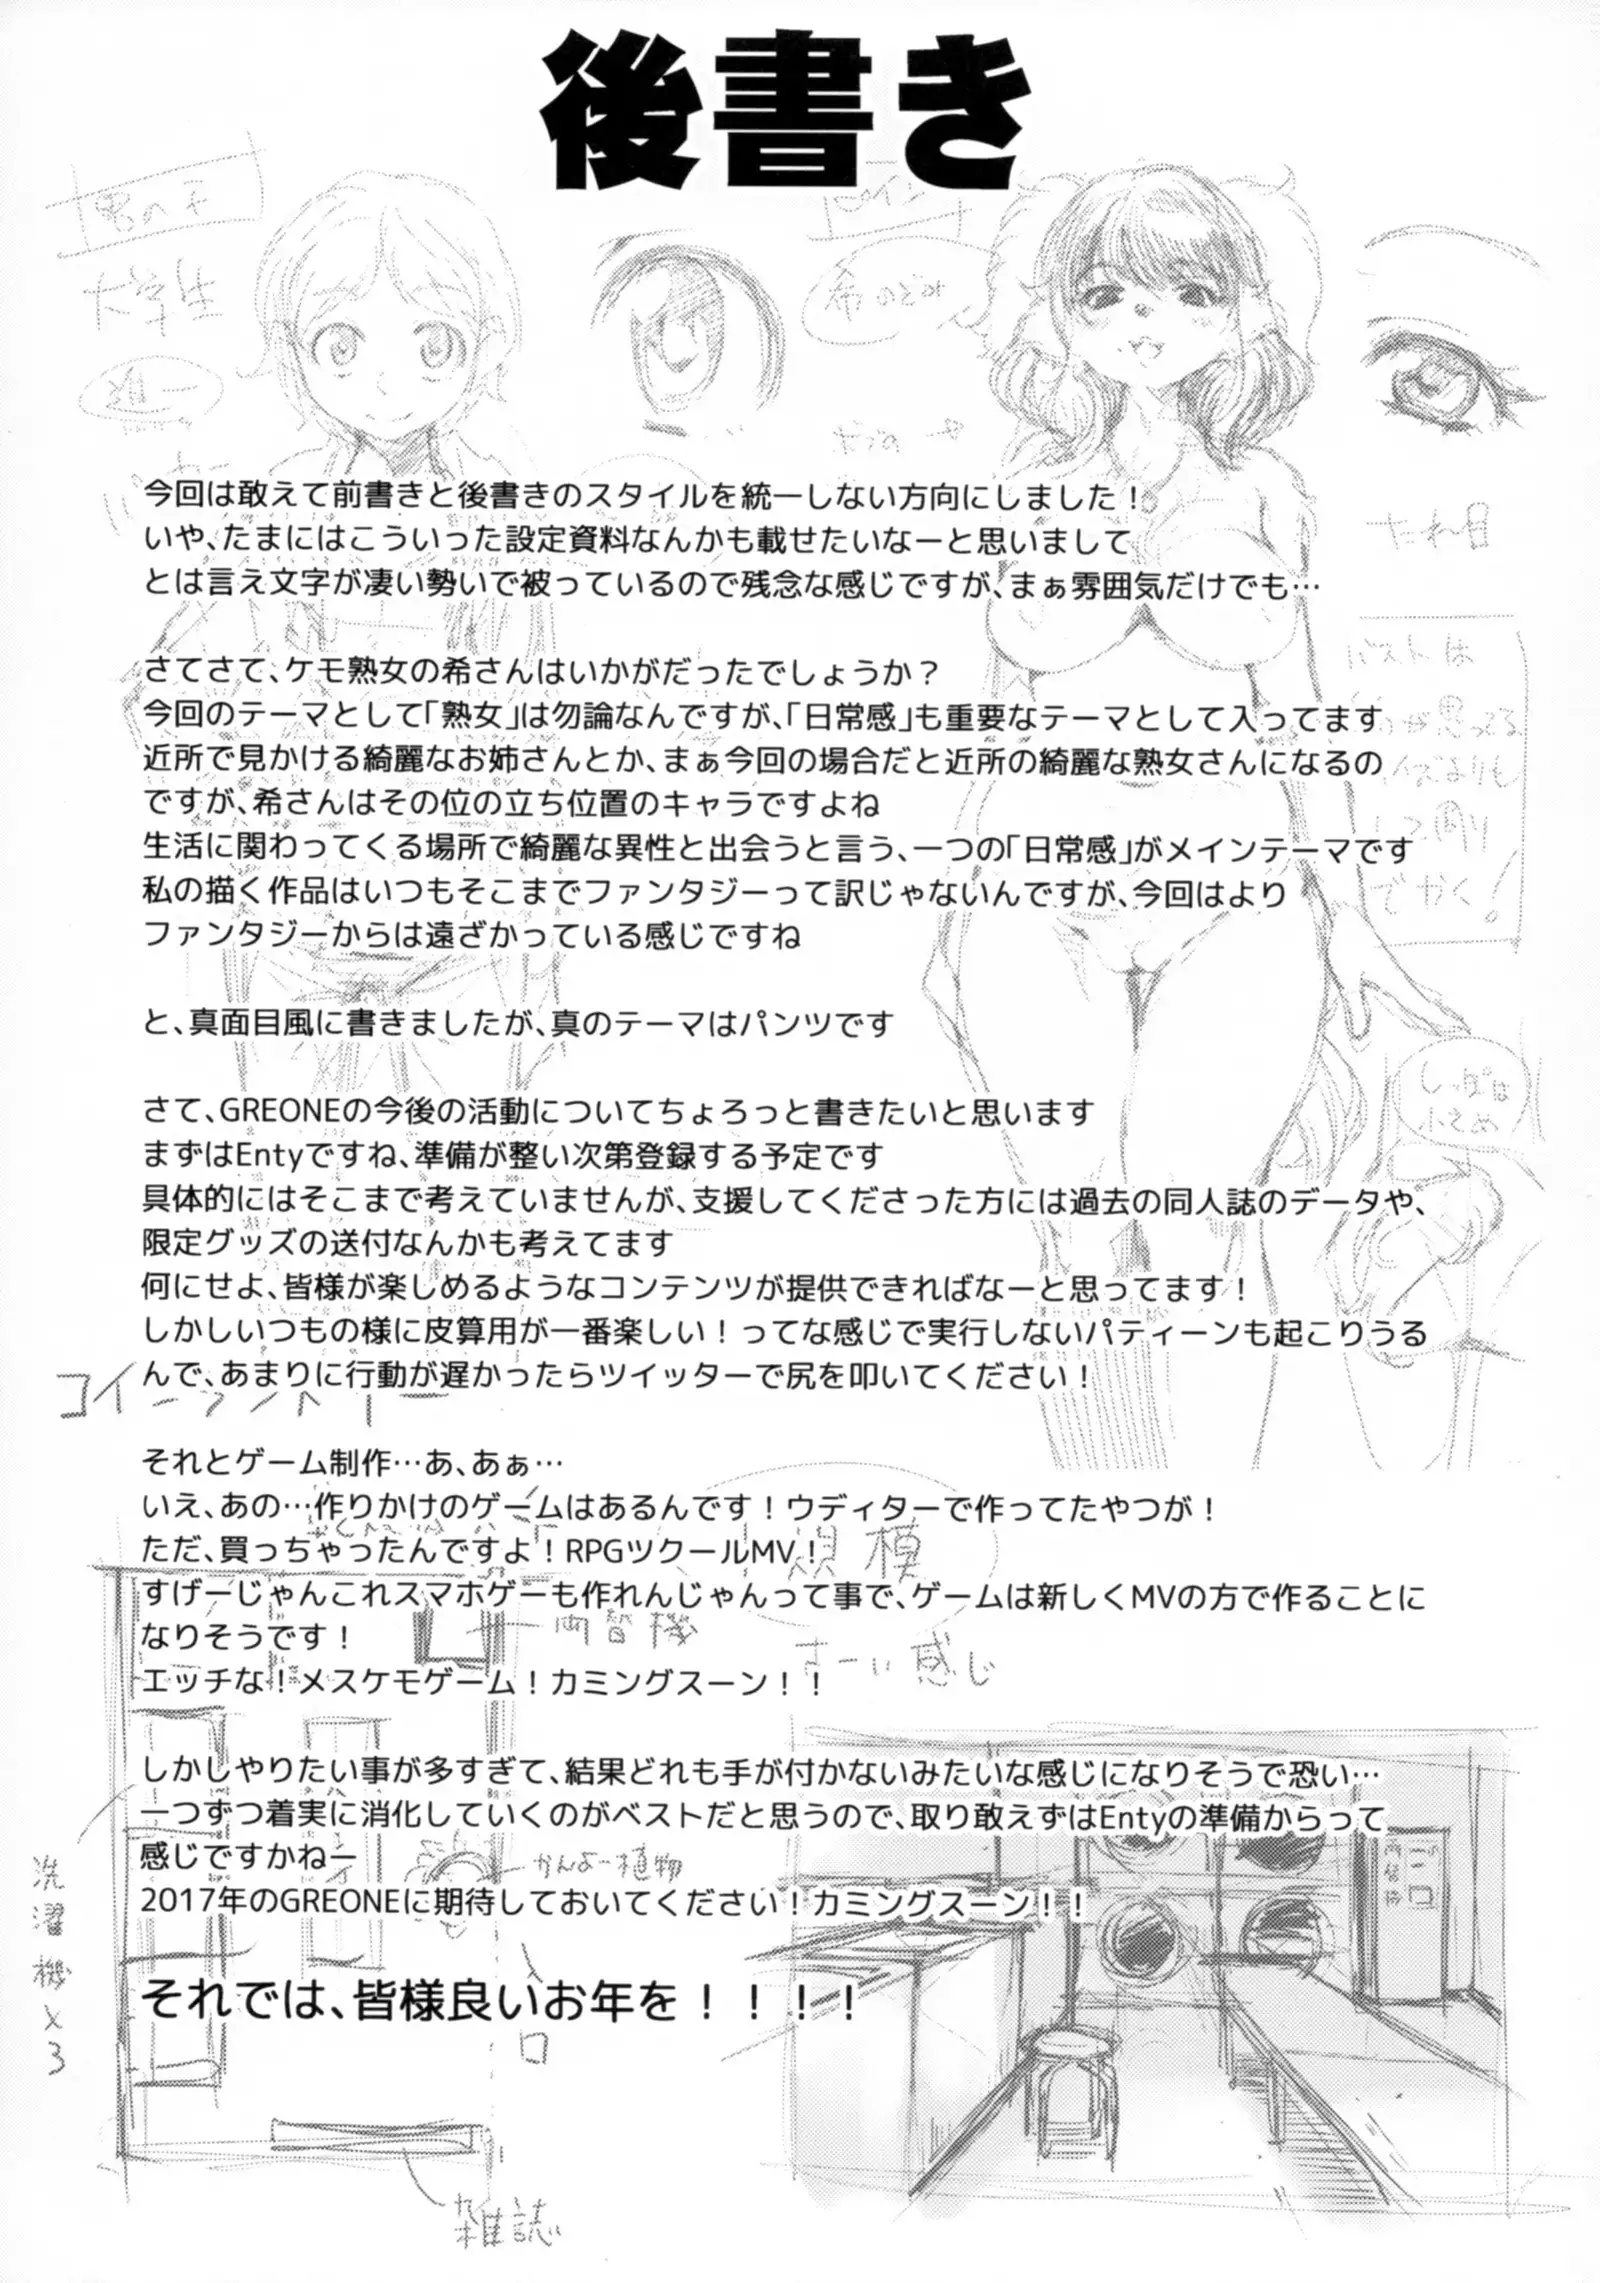 後書き
男の子
大学生
ヒロイン
希 のぞみ
たれ目
今回は敢えて前書きと後書きのスタイルを統一しない方向にしました！
いや、たまにはこういった設定資料なんかも載せたいなーと思いまして
とは言え文字が凄い勢いで被っているので残念な感じですが、まぁ雰囲気だけでも…
さてさて、ケモ熟女の希さんはいかがだったでしょうか？
今回のテーマとして「熟女」は勿論なんですが、「日常感」も重要なテーマとして入ってます
近所で見かける綺麗なお姉さんとか、まぁ今回の場合だと近所の綺麗な熟女さんになるの
ですが、希さんはその位の立ち位置のキャラですよね
生活に関わってくる場所で綺麗な異性と出会うと言う、一つの「日常感」がメインテーマです
私の描く作品はいつもそこまでファンタジーって訳じゃないんですが、今回はより
ファンタジーからは遠ざかっている感じですね
バストは
が思ってる
よりも
でかく！
と、真面目風に書きましたが、真のテーマはパンツです
しっぽは
小さめ
さて、GREONEの今後の活動についてちょろっと書きたいと思います
まずはEntyですね、準備が整い次第登録する予定です
具体的にはそこまで考えていませんが、支援してくださった方には過去の同人誌のデータや、
限定グッズの送付なんかも考えてます
何にせよ、皆様が楽しめるようなコンテンツが提供できればなーと思ってます！
しかしいつもの様に皮算用が一番楽しい！ってな感じで実行しないパティーンも起こりうる
んで、あまりに行動が遅かったらツイッターで尻を叩いてください！
コインランドリー
それとゲーム制作…あ、あぁ…
いえ、あの…作りかけのゲームはあるんです！ウディターで作ってたやつが！
ただ、買っちゃったんですよ！RPGツクールMV！
すげーじゃんこれスマホゲーも作れんじゃんって事で、ゲームは新しくMVの方で作ることに
なりそうです！
エッチな！メスケモゲーム！カミングスーン！！
規模
両替機
感じ
しかしやりたい事が多すぎて、結果どれも手が付かないみたいな感じになりそうで恐い…
一つずつ着実に消化していくのがベストだと思うので、取り敢えずはEntyの準備からって
感じですかねー
2017年のGREONEに期待しておいてください！カミングスーン！！
かんよー植物
両替機
洗濯機×3
入口
それでは、皆様良いお年を！！！！
雑誌